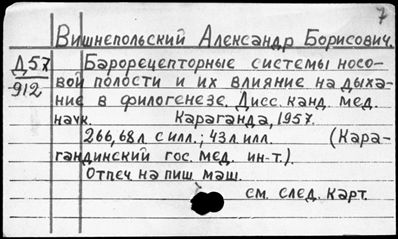 7
Вишнепольский Александр Борисович.
Д57
912
Барорецепторные системы носо-
вой полости и их влияние на дыха-
ние в филогенезе. Дисс. канд. мед.
наук. Караганда, 1957.
266,68л. с илл.; 43л. илл. (Кара-
гандинский гос. мед. ин-т.).
Отпеч на пиш маш.
см. след. карт.